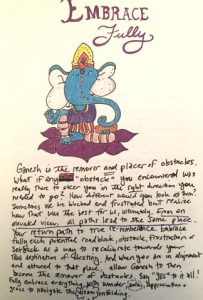 EMBRACE
Fully
Ganesh is the remover and placer of obstacles.
What if any "obstacle" you encountered was
really there to steer you in the right direction you
needed to go? How different would you look at them?
Sometimes we are blocked and frustrated but realize
how that was the best for us, ultimately. From an
elevated view, all paths lead to the same place.
Your return path to true re-membrance. Embrace
fully each potential road block, obstacle, frustration or
setback as a way to recalibrate toward your
destination of destiny. And when you are in alignment
and attuned to that place, allow Ganesh to then
become the remover of obstacles. Say "YES" to it all!
Fully embrace everything with wonder, awe, appreciation &
grace to the divine plan unfolding.